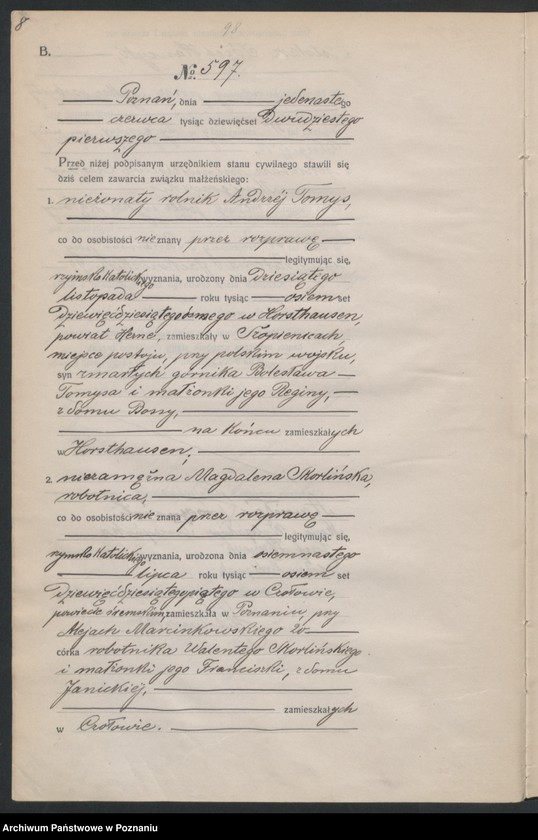 8
98
B.
№ 597.
Poznań, dnia jedenastego
czerwca tysiąc dziewięćset dwudziestego
pierwszego
Przed niżej podpisanym urzędnikiem stanu cywilnego stawili się
dziś celem zawarcia związku małżeńskiego:
1. nieżonaty rolnik Andrzéj Tomys,
co do osobistości nieznany przez rozprawę
legitymując się,
rzymsko katolickiego wyznania, urodzony dnia dziesiątego
listopada roku tysiąc osiemset
dziewięćdziesiątegoósmego w Horsthausen,
powiat Herne, zamieszkały w
miejsce postoju, przy polskim wojsku,
syn zmarłych górnika Bolesława
Tomysa i małżonki jego Reginy,
z domu
na końcu zamieszkałych
w Horsthausen;
2. niezamężna Magdalena Skorlińska,
robotnica,
co do osobistości nie znana przez rozprawę
legitymując się,
rzymsko katolickiego wyznania, urodzona dnia osiemnastego
lipca roku tysiąc osiemset
dziewięćdziesiątegopiątego w Czołowie,
powiecie śremskim, zamieszkała w Poznaniu, przy
Alejach Marcinkowskiego 20
córka robotnika Walentego Skorlińskiego
i małżonki jego Franciszki, z domu
Janickiéj,
zamieszkałych
w Czołowie.
Archiwum Państwowe w Poznaniu